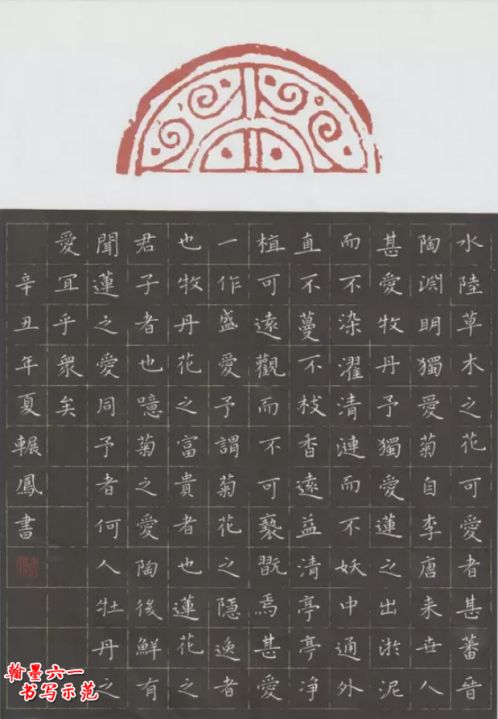 水陸草木之花可愛者甚蕃晉
陶淵明獨愛菊自李唐来世人
甚愛牧丹予獨愛蓮之出淤泥
而不染濯清漣而不妖中通外
直不蔓不枝香遠益清亭亭净
植可遠觀而不可褻翫焉甚愛
一作盛愛予謂菊花之隱逸者
也牧丹花之富貴者也蓮花之
君子者也噫菊之愛陶後鮮有
聞蓮之愛同予者何人牡丹之
愛宜乎衆矣
辛丑年夏輾鳳書
翰墨六一
书写示范